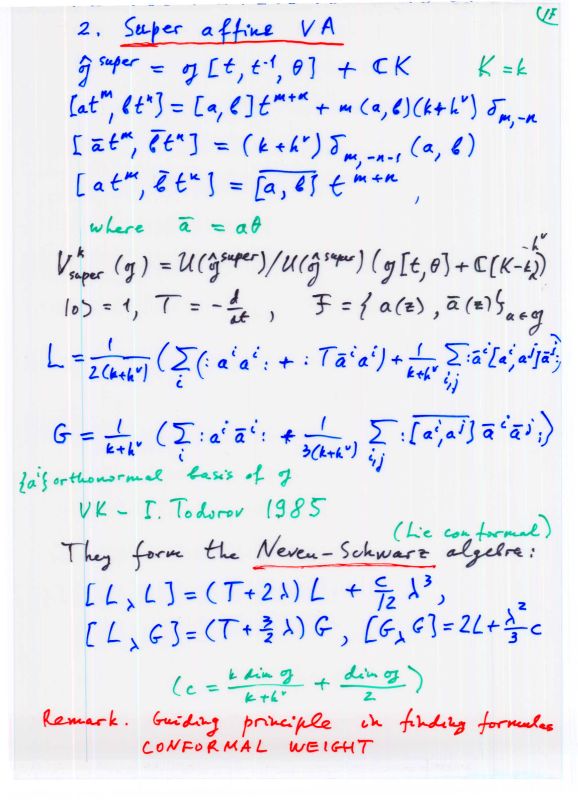 17
2. Super affine VA
ĝ^super = g[t, t⁻¹, θ] + ℂK    K = k
[at^m, bt^n] = [a, b]t^{m+n} + m(a, b)(k+h^v) δ_{m,-n}
[āt^m, b̄t^n] = (k+h^v) δ_{m,-n-1} (a, b)
[at^m, b̄t^n] = \overline{[a, b]} t^{m+n},
where ā = aθ
V^k_super(g) = U(ĝ^super)/U(ĝ^super)(g[t, θ] + ℂ(K-k-h^v))
|0⟩ = 1, T = -d/dt, F = {a(z), ā(z)}_{a∈g}
L = 1/2(k+h^v) (Σ_i (:a^i a^i: + :Tā^i a^i) + 1/(k+h^v) Σ_{i,j} :ā^i[a^i, a^j]ā^j:)
G = 1/(k+h^v) (Σ_i :a^i ā^i: + 1/3(k+h^v) Σ_{i,j} :\overline{[a^i, a^j]} ā^i ā^j:)
{a^i} orthonormal basis of g
VK – I. Todorov 1985
(Lie conformal)
They form the Neveu–Schwarz algebra:
[L_λ L] = (T+2λ)L + c/12 λ³,
[L_λ G] = (T+3/2 λ)G, [G_λ G] = 2L + λ²/3 c
(c = k dim g/(k+h^v) + dim g/2)
Remark. Guiding principle in finding formulas
CONFORMAL WEIGHT